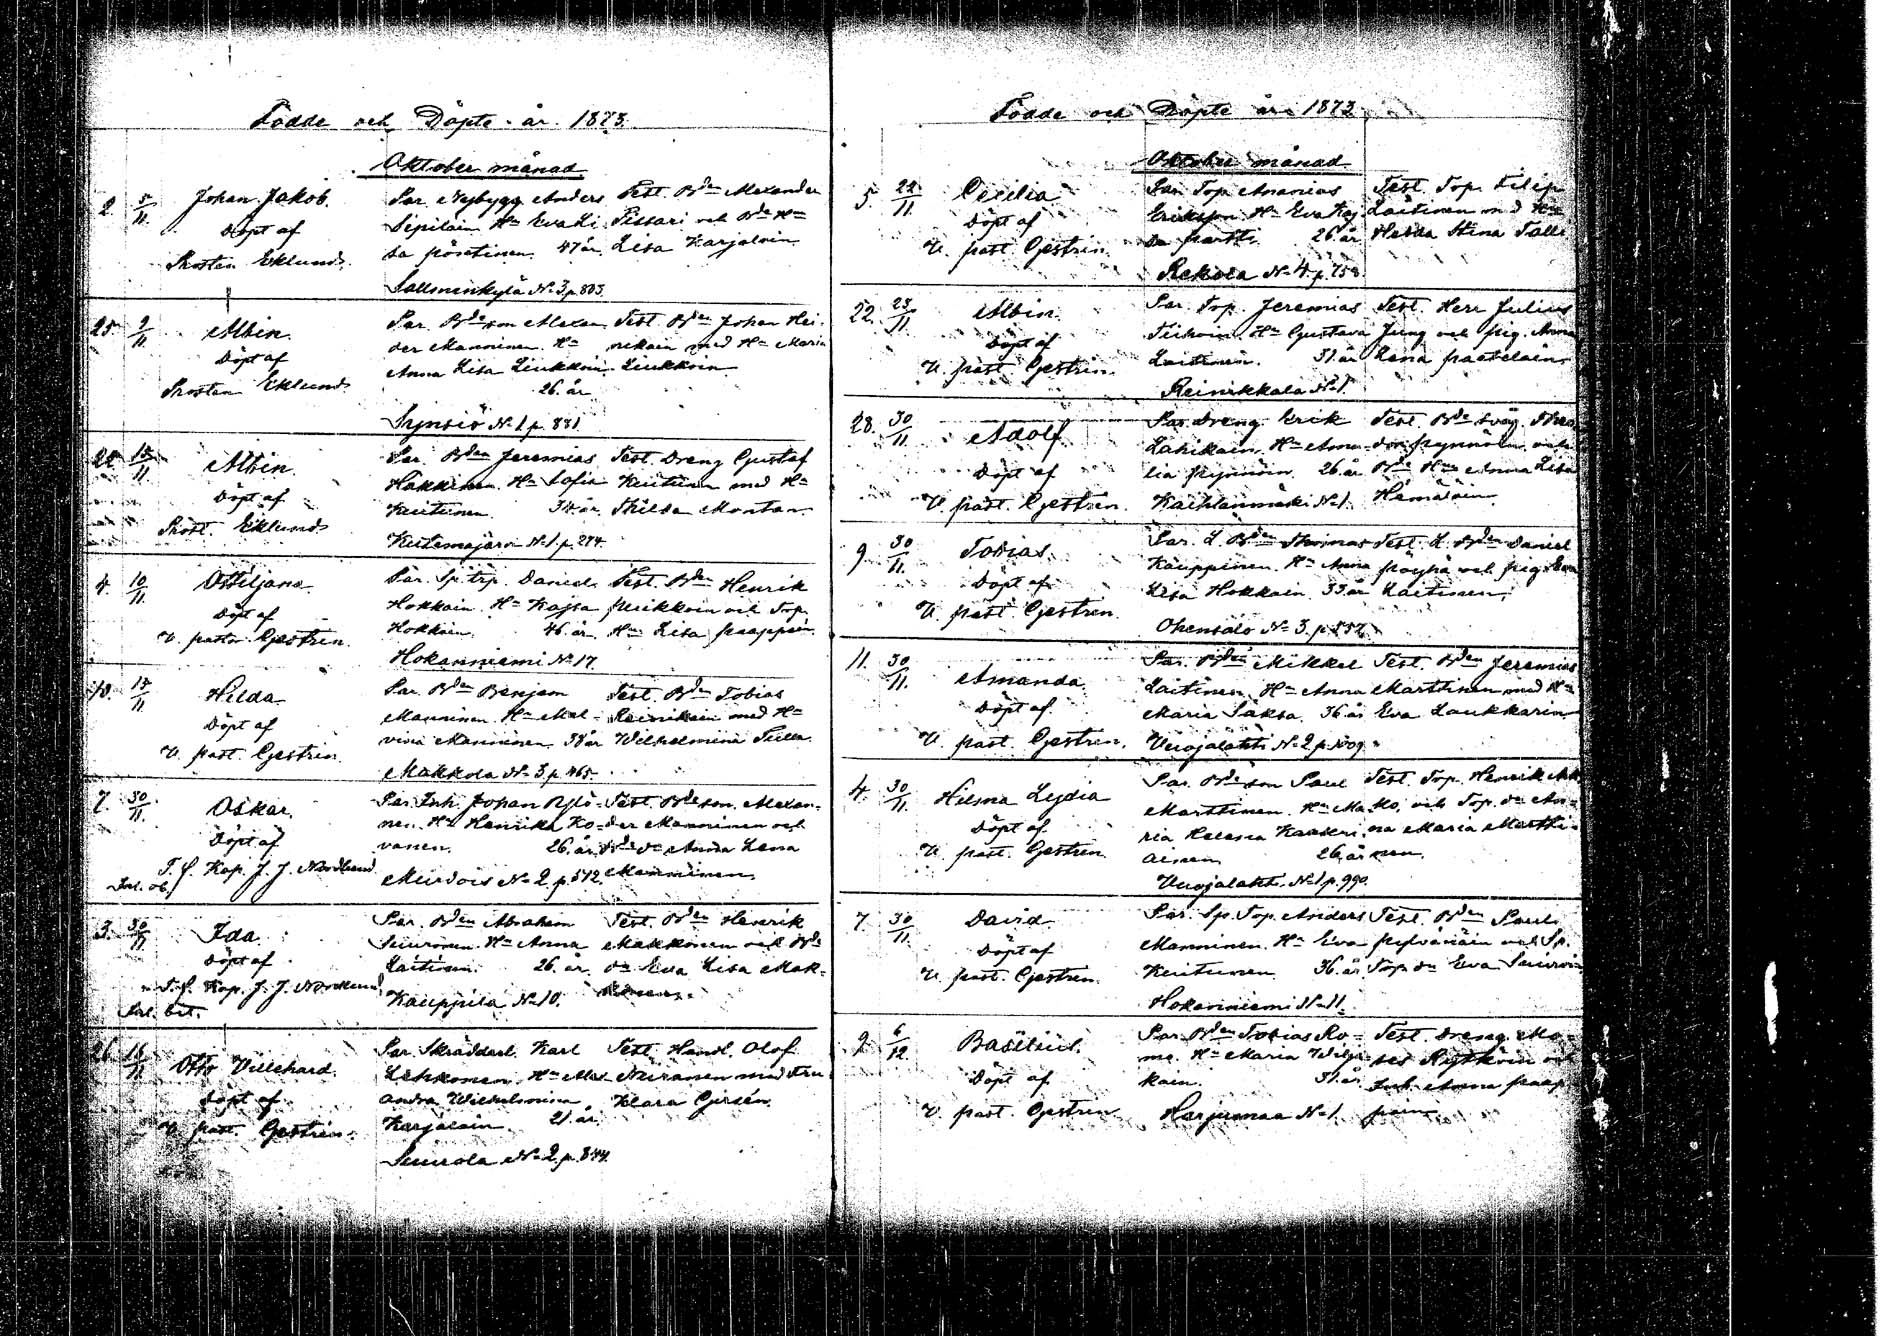 Födde och Döpte år 1873.
Oktober månad
2. 5/11. Johan Jakob.
Döpt af
Prosten Eklund.
Par. Nybygg Anders
Sipilain H– Eva Li
sa pösetinen 47 år
Sallmenkylä N– 3 p. 803.
Test. Bden Alexander
Pissari och Bde H–
Lisa Karjalain
25. 9/11 Albin.
Döpt af
Prosten Eklund
Par. Bdeson Alexan
der Manninen. H–
Anna Lisa Liukkoin
26. år
Synsiö N– 1 p. 881
Test. Bden Johan Hei-
nikain med H– Maria
Liukkoin
Albin.
Döpt af
Prost. Eklund
Par. Bden Jeremias
Hokkinen. H– Sofia
Keitunen 34 år
Kutemajärvi N– 1 p. 274.
Test. Dreng Gustaf
Keitunen med H–
Hilda Montan
4. 10/11 Ottiljana
Döpt af
V. pastor Gestrin
Par. Sp. trp. Daniel
Hokkain. H– Kajsa
Hokkain. 46. år
Hokanniemi N– 17.
Test. Bden Henrik
Pirikkoin och Top.
H– Lisa paappain
Hilda
Döpt af
V. past. Gestrin
Par. Bden Benjam
Manninen H– Mal-
vina Manninen 38 år
Makkola N– 3 p. 465.
Test. Bden Tobias
Reinikain med H–
Wilhelmina Tulla
7. 30/11. Oskar.
Döpt af
T. f. Kap. J. J. Nordlund
Par. Inh. Johan Rytö-
nen. H– Henrika Ko-
vanen. 26. år
Murdois N– 2. p. 572.
Test. Bdeson. Alexan-
der Manninen och
Bde d– Anna Lena
Manninen.
3. 30/11 Ida.
Döpt af
T. f. Kap. J. J. Nordlund
Par. Bden Abraham
Seuronen. H– Anna
Laitinen. 26. år.
Kauppila N– 10.
Test. Bden Henrik
Makkonen och Bde
d– Eva Lisa Mak-
konen.
26. 16/11 Otto Villehard.
Döpt af
V. past. Gestrin.
Par. Skräddarl. Karl
Lehkonen. H– Alex
andra Wilhelmina
Karjalain. 21. år
Seurola N– 2 p. 844.
Test. Handl. Olof
Neiranen med Fru
Klara Gersén
Födde och Döpte år 1873
Oktober månad
5. 22/11. Cecilia
Döpt af
V. past. Gestrin.
Par. Top. Ananias
Eriksson. H– Eva Kaj
sa partti 26 år
Rekola N– 4. p. 758.
Test. Top. Filip
Laitinen med H–
Hedda Stina Talli
22. 23/11. Albin.
Döpt af
V. past. Gestrin.
Par. Top. Jeremias
H– Gustava
Laitinen. 31. år
Reinikkala N– 1.
Test. Herr Julius
Jung och pig. Anna
Lena paatelain
28. 30/11. Adolf.
Döpt af
V. past. Gestrin.
Par. Dreng. Erik
Lahikain. H– Ama-
lia pynninen. 26. år
Kaihlanmäki N– 1.
Test. Bde svåg. Theo
dor pynnöin och
Bde H– Anna Lisa
Hämäläin
9. 30/11. Tobias.
Döpt af
V. past. Gestrin.
Par. L. Bden Thomas
Kauppinen. H– Anna
Lisa Hokkain. 33 år
Ohensalo N– 3. p. 857.
Test. L. Bden Daniel
pöyhä och pig. Eva
Laitinen.
11. 30/11. Amanda.
Döpt af
V. past. Gestrin.
Par. Bden Mikkel
Laitinen. H– Anna
Maria Saksa. 36 år
Vuojalahti N– 2 p. 1009.
Test. Bden Jeremias
Marttinen med H–
Eva Laukkarin
4. 30/11. Hilma Lydia
Döpt af
V. past. Gestrin.
Par. Bdeson Paul
Marttinen. H– Ma-
ria Helena Kaakeri
ainen 26. år
Vuojalahti. N– 1 p. 990.
Test. Top. Henrik
och Top. d– An-
na Maria Martti-
nen.
7. 30/11. David
Döpt af
V. past. Gestrin.
Par. Sp. Top. Anders
Manninen. H– Eva
Keitunen 36. år
Hokanniemi N– 11.
Test. Bden Paul
pylvänäin och Sp.
Top. d– Eva Seuroin
9. 6/12 Basilius.
Döpt af
V. past. Gestrin
Par. Bden Tobias Ro-
mo. H– Maria
kain. 31. år
Harjumaa N– 1.
Test. Dreng. Mo-
ses Rytköin och
Inh. Anna paap
pain